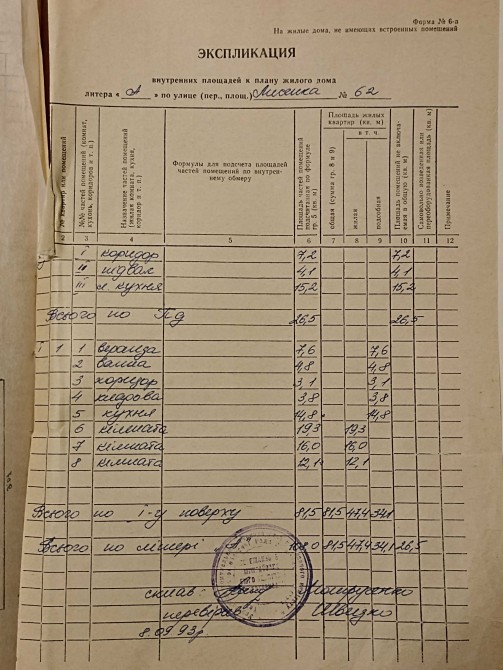 Форма № 6-а
На жилые дома, не имеющих встроенных помещений
ЭКСПЛИКАЦИЯ
внутренних площадей к плану жилого дома
литера « А » по улице (пер., площ.) Лисенка № 62
№ квартир или помещений
№№ частей помещений (комнат, кухонь, коридоров и т. п.)
Назначение частей помещений (жилая комната, кухня, коридор и т. п.)
Формулы для подсчета площадей частей помещений по внутреннему обмеру
Площадь частей помещений подсчитанная по формуле гр. 5 (кв. м)
Площадь жилых квартир (кв. м)
общая (сумма гр. 8 и 9)
в т. ч.
жилая
подсобная
Площадь помещений не включаемая в общую (кв. м)
Самовольно возведенная или переоборудованная площадь (кв. м)
Примечание
2 3 4 5 6 7 8 9 10 11 12
I коридор 7,2 7,2
II підвал 4,1 4,1
III л. кухня 15,2 15,2
Всього по Пд 26,5 26,5
I 1 1 веранда 7,6 7,6
2 ванна 4,8 4,8
3 коридор 3,1 3,1
4 кладова 3,8 3,8
5 кухня 14,8 14,8
6 кімната 19,3 19,3
7 кімната 16,0 16,0
8 кімната 12,1 12,1
Всього по I-у поверху 81,5 81,5 47,4 34,1
Всього по літері "А" 108,0 81,5 47,4 34,1 26,5
склав
перевірив Швидко
8.09 93р